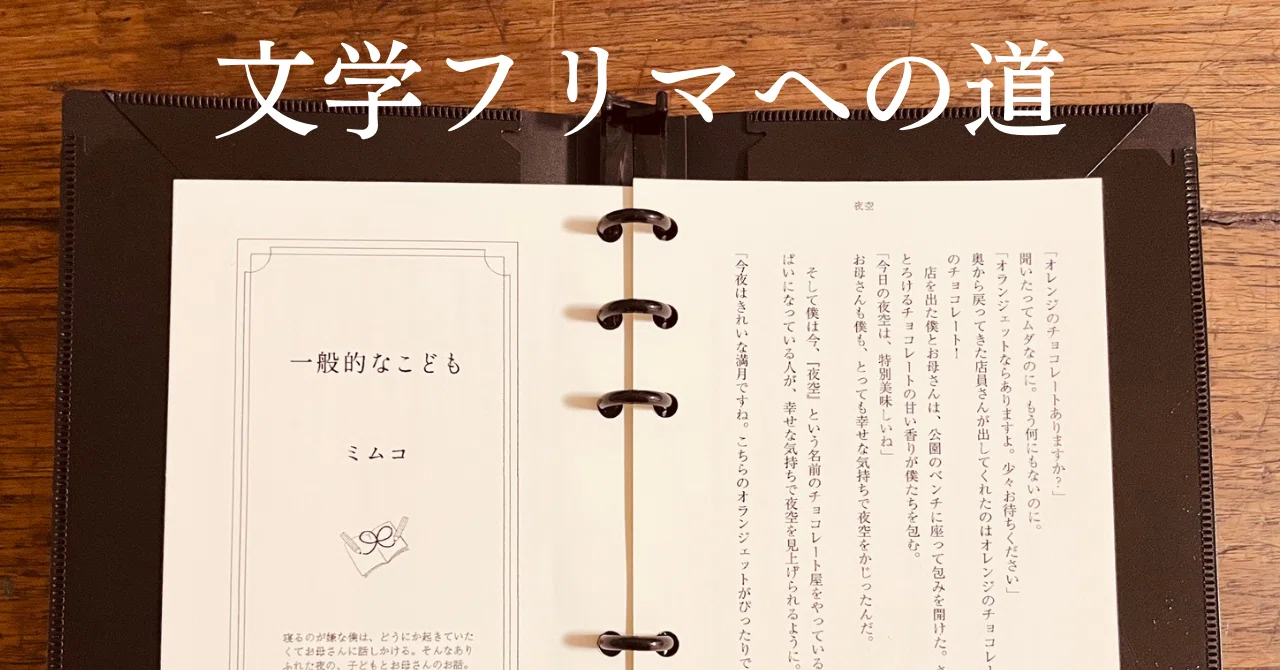 文学フリマへの道
一般的なこども
ミムコ
寝るのが嫌な僕は、どうにか起きていた
くてお母さんに話しかける。そんなあり
ふれた夜の、子どもとお母さんのお話。
夜空
「オレンジのチョコレートありますか?」
聞いたってムダなのに。もう何にもないのに。
「オランジェットならありますよ。少々お待ちください」
奥から戻ってきた店員さんが出してくれたのはオレンジのチョコレー
のチョコレート!
店を出た僕とお母さんは、公園のベンチに座って包みを開けた。
とろけるチョコレートの甘い香りが僕たちを包む。
「今日の夜空は、特別美味しいね」
お母さんも僕も、とっても幸せな気持ちで夜空をかじったんだ。
そして僕は今、『夜空』という名前のチョコレート屋をやっている
ぱいになっている人が、幸せな気持ちで夜空を見上げられるように。
「今夜はきれいな満月ですね。こちらのオランジェットがぴったりで